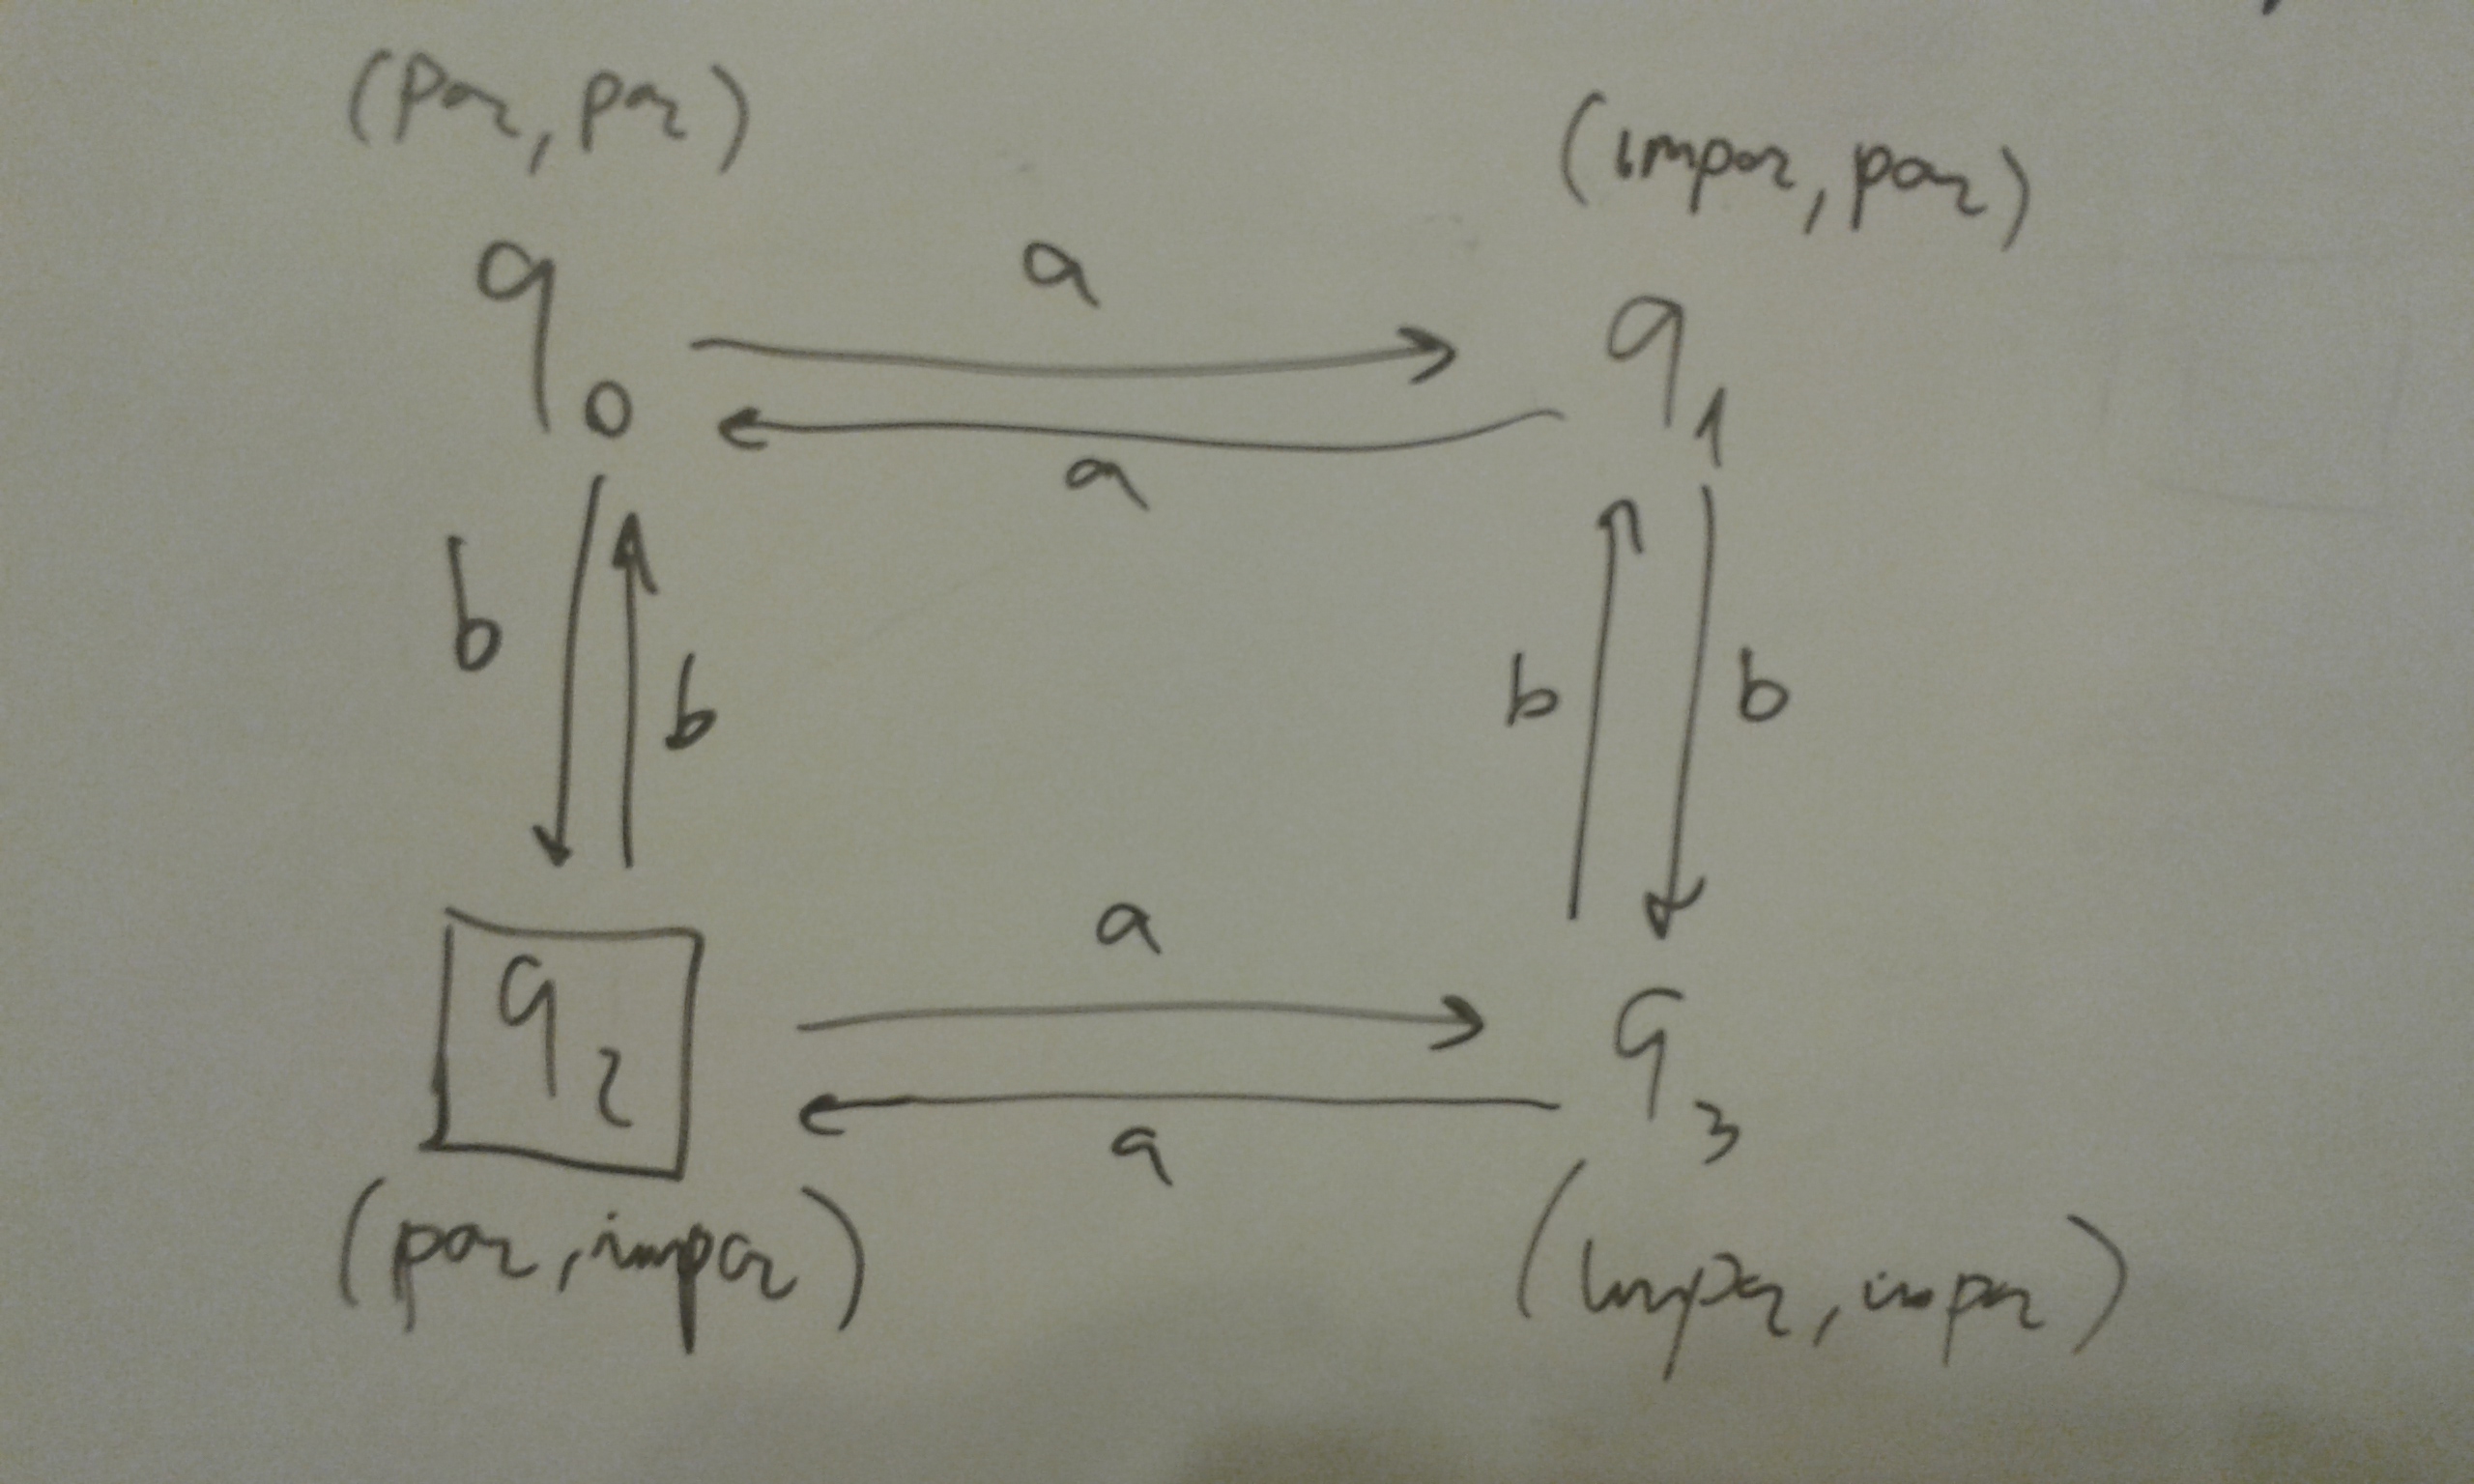 (par, par)
(impar, par)
a
q0
q1
a
b
b
b
b
a
q2
q3
a
(par, impar)
(impar, impar)